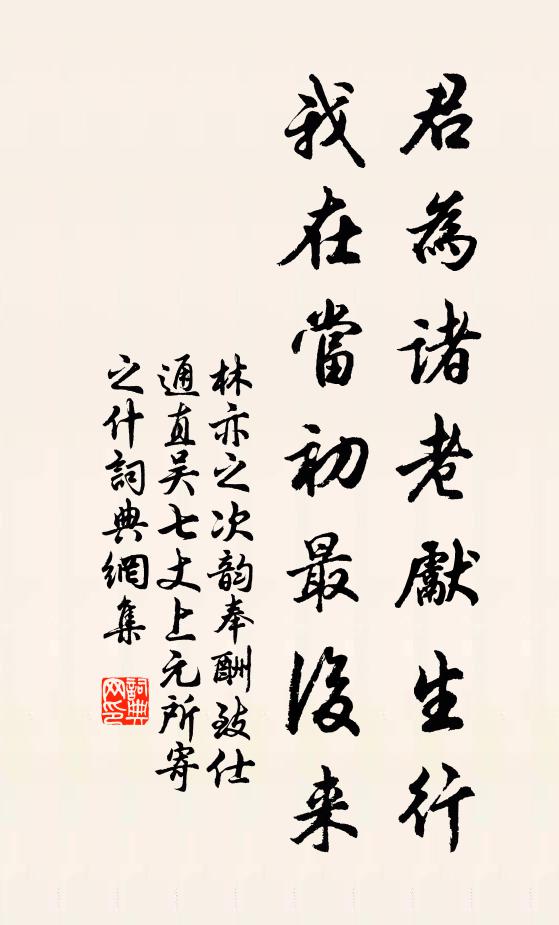 君為諸老獻生行
我在當初最後來
林亦之次韵奉酬致仕
通直吴七丈上元所寄
之什詞典網集
詞典
网印